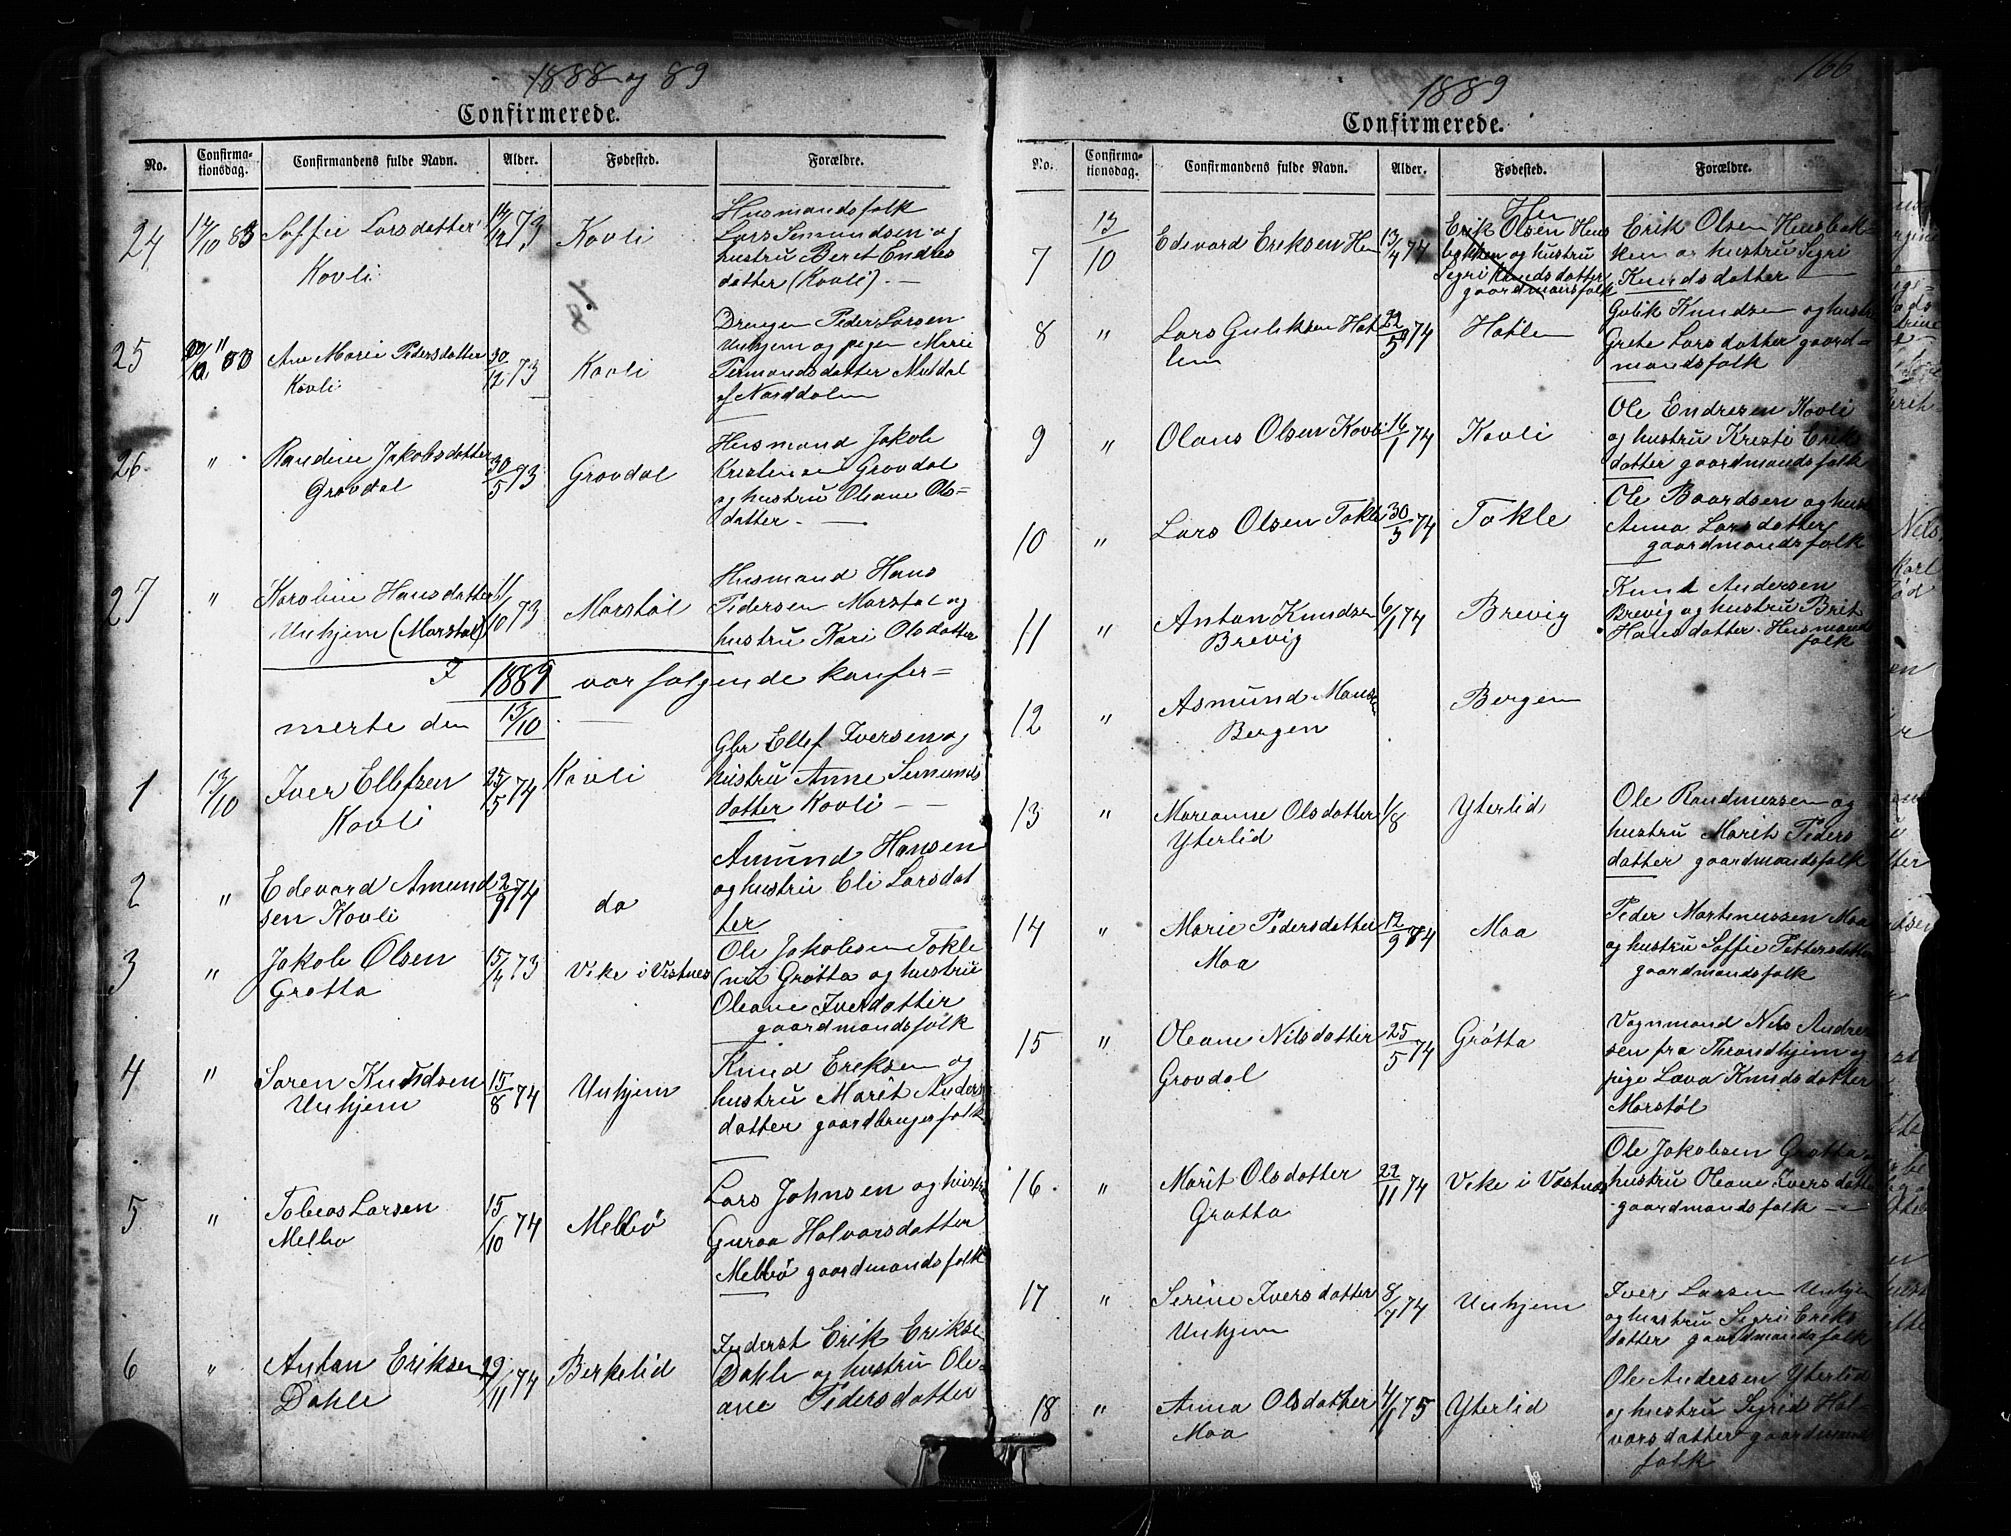 1888 og 89
Confirmerede.
No.
Confirma-
tionsdag.
Confirmandens fulde Navn.
Alder.
Fødested.
Forældre.
24
14/10 88
Soffie Larsdatter
Kovli
14/12 73
Kovli
Husmandsfolk
Lars Semundsen og
hustru Beret Endres
datter (Kovli). —
25
"
Ane Marie Pedersdatter
Kovli
30/12 73
Kovli
Drengen Peder Larsen
Unhjem og pigen Marie
datter Muldal
af Norddalen
26
"
Randine Jakobsdatter
Grovdal
30/5 73
Grovdal
Husmand Jakob
Kristensen Grovdal
og hustru Oleane Ols-
datter. —
27
"
Karoline Hansdatter
Unhjem (Marstøl)
11/10 73
Marstøl
Husmand Hans
Pedersen Marstøl og
hustru Kari Olsdatter
I 1889 var følgende konfer-
merte den 13/10. —
1
13/10
Iver Ellefsen
Kovli
25/5 74
Kovli
Gbr Ellef Iversen og
hustru Anne Semunds
datter Kovli — —
2
"
Edevard Amund
sen Kovli
2/9 74
do
Amund Hansen
og hustru Eli Larsdat
ter
3
"
Jakob Olsen
Grøtta
15/4 73
Vike i Vestnes
Ole Jakobsen Tokle
(nu Grøtta og hustru
Oleane Iversdatter
gaardmandsfolk
4
"
Søren Knudsen
Unhjem
15/8 74
Unhjem
Knud Eriksen og
hustru Marit Anders
datter gaardbrugerfolk
5
"
Tobias Larsen
Melbø
15/10 74
Melbø
Lars Johnsen og hustr
Guroa Halvorsdatter
Melbø gaardmandsfolk
6
"
Anton Eriksen
Dahle
29/11 74
Berkelid
Inderst Erik Erikse
Dahle og hustru Ole-
ane Pedersdatter
166
1889
Confirmerede.
No.
Confirma-
tionsdag.
Confirmandens fulde Navn.
Alder.
Fødested.
Forældre.
7
13/10
Edevard Eriksen Hen
13/4 74
Hen
Erik Olsen Hens
bakken og hustru
Segri Knudsdatter
gaardmansfolk
Erik Olsen Hensbak-
ken og hustru Segri
Knudsdatter —
8
"
Lars Guliksen Hat
len
22/5 74
Hatlen
Gulik Knudsen og hustr
Grete Larsdatter gaard=
mandsfolk
9
"
Olaus Olsen Kovli
16/1 74
Kovli
Ole Endresen Kovli
og hustru Kristi Eriks
datter gaardmandsfolk
10
"
Lars Olsen Tokle
30/3 74
Tokle
Ole Baardsen og hust
Anna Larsdatter
gaardmandsfolk
11
"
Anton Knudsen
Brevig
6/1 74
Brevig
Knud Andersen
Brevig og hustru Brit
Hansdatter. Husmand
folk
12
"
Asmund Mons
Bergen
Bergen
13
"
Marianne Olsdatter
Yterlid
1/8
Yterlid
Ole Rasmussen og
hustru Marit Peders
datter gaardmandsfolk
14
"
Marie Pedersdatter
Moa
12/9 74
Moa
Peder Martinussen Moa
og hustru Soffie Pettersdatter
gaardmandsfolk
15
"
Oleane Nilsdatter
Grovdal
25/5 74
Grøtta
Vognmand Nils Andre
sen fra Throndhjem og
pige Lava Knudsdatter
Marstøl
16.
"
Marit Olsdatter
Grøtta
22/11 74
Vike i Vestnes
Ole Jakobsen Grøtta
hustru Oleane Iversdatter
gaardmandsfolk —
17
"
Serine Iversdatter
Unhjem
8/7 74
Unhjem
Iver Larsen Unhjem
og hustru Segri Eriks
datter gaardmandsfolk
18
"
Anna Olsdatter
Moa
4/1 75
Yterlid
Ole Andersen Yterlid
og hustru Segrid Hal-
vorsdatter gaardmand
folk